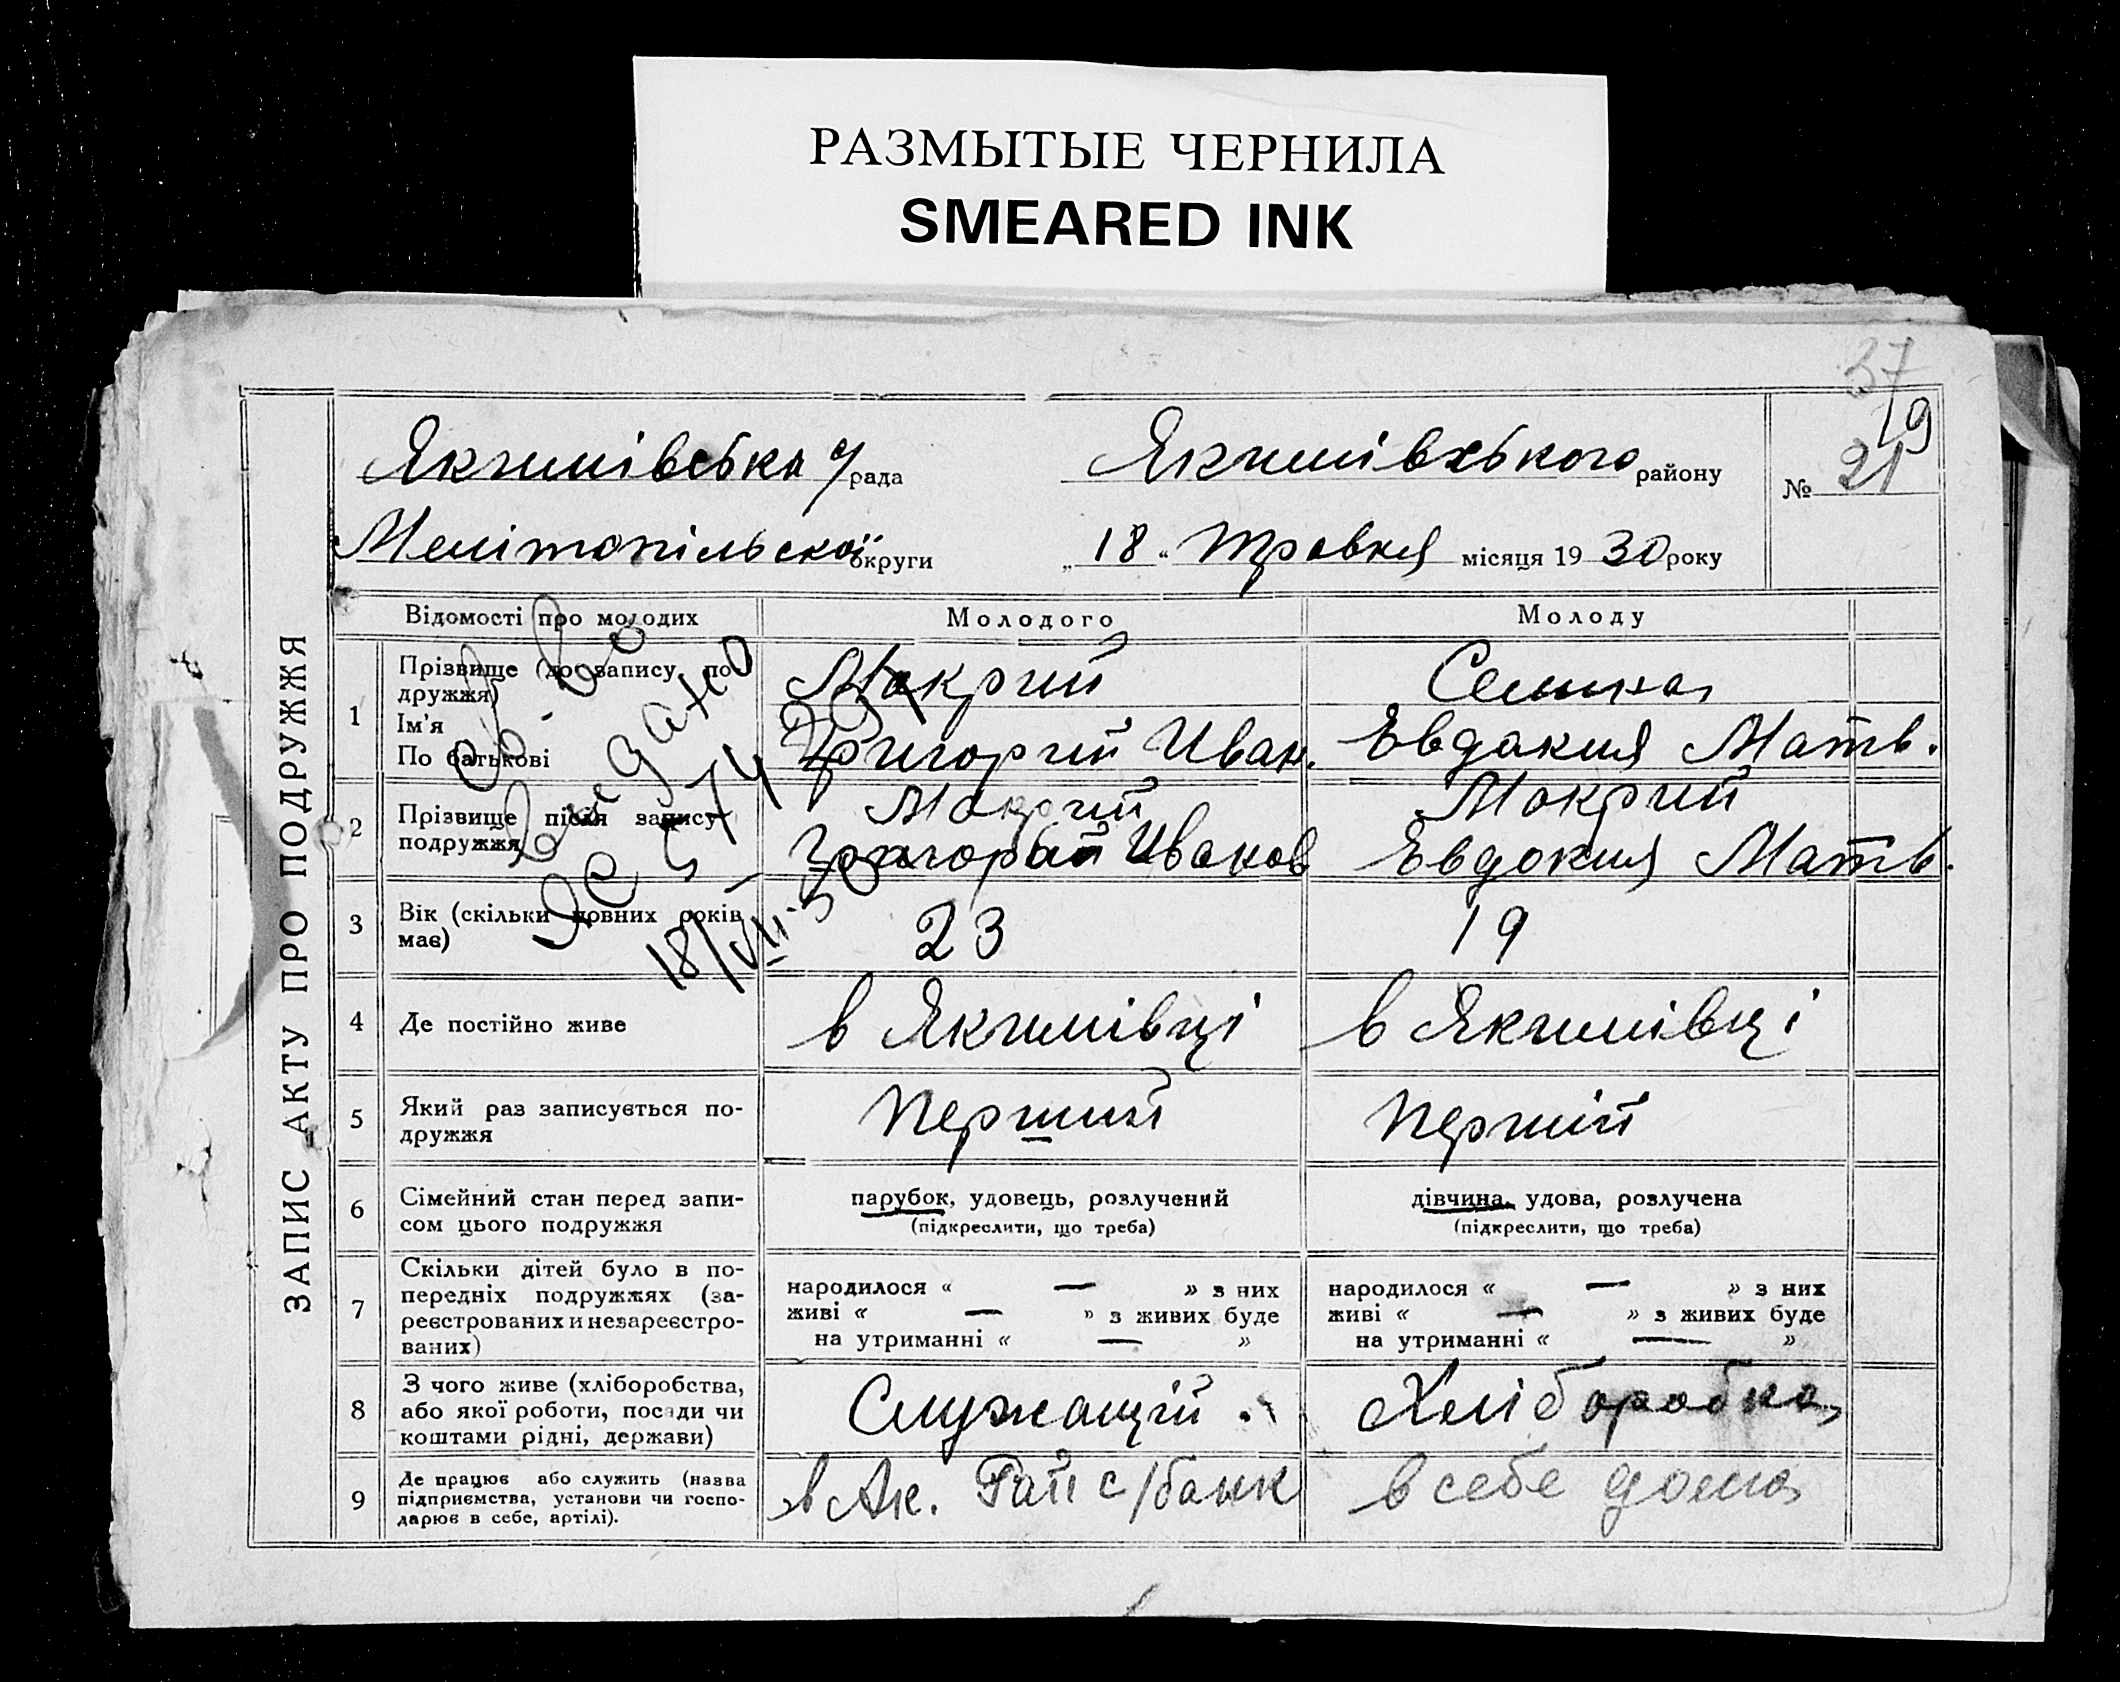 РАЗМЫТЫЕ ЧЕРНИЛА
SMEARED INK
37
19
Якимівська рада Якимівського району № 21
Мелітопільської округи „ 18 “ травня місяця 19 30 року
ЗАПИС АКТУ ПРО ПОДРУЖЖЯ
Відомості про молодих Молодого Молоду
1 Прізвище (до запису по-
дружжя)
Ім'я
По батькові
Мокрий
Григорий Иван.
Евдакия Матв.
2 Прізвище після запису
подружжя
Мокрий
Григорий Иванов
Мокрий
Евдокия Матв.
св-во
Видано
ЯС 574207
18/VII-30
3 Вік (скільки повних років
має)
23
19
4 Де постійно живе
в Якимівці
в Якимівці
5 Який раз записується по-
дружжя
Перший
Перший
6 Сімейний стан перед запи-
сом цього подружжя
парубок, удовець, розлучений
(підкреслити, що треба)
дівчина, удова, розлучена
(підкреслити, що треба)
7 Скільки дітей було в по-
передніх подружжях (за-
реєстрованих и незареєстро-
ваних)
народилося « — » з них
живі « — » з живих буде
на утриманні « — »
народилося « — » з них
живі « — » з живих буде
на утриманні « — »
8 З чого живе (хліборобства,
або якої роботи, посади чи
коштами рідні, держави)
Служащій
Хліборобка
9 Де працює або служить (назва
підприємства, установи чи госпо-
дарює в себе, артілі).
в Ак. Рай с/банк
в себе дома